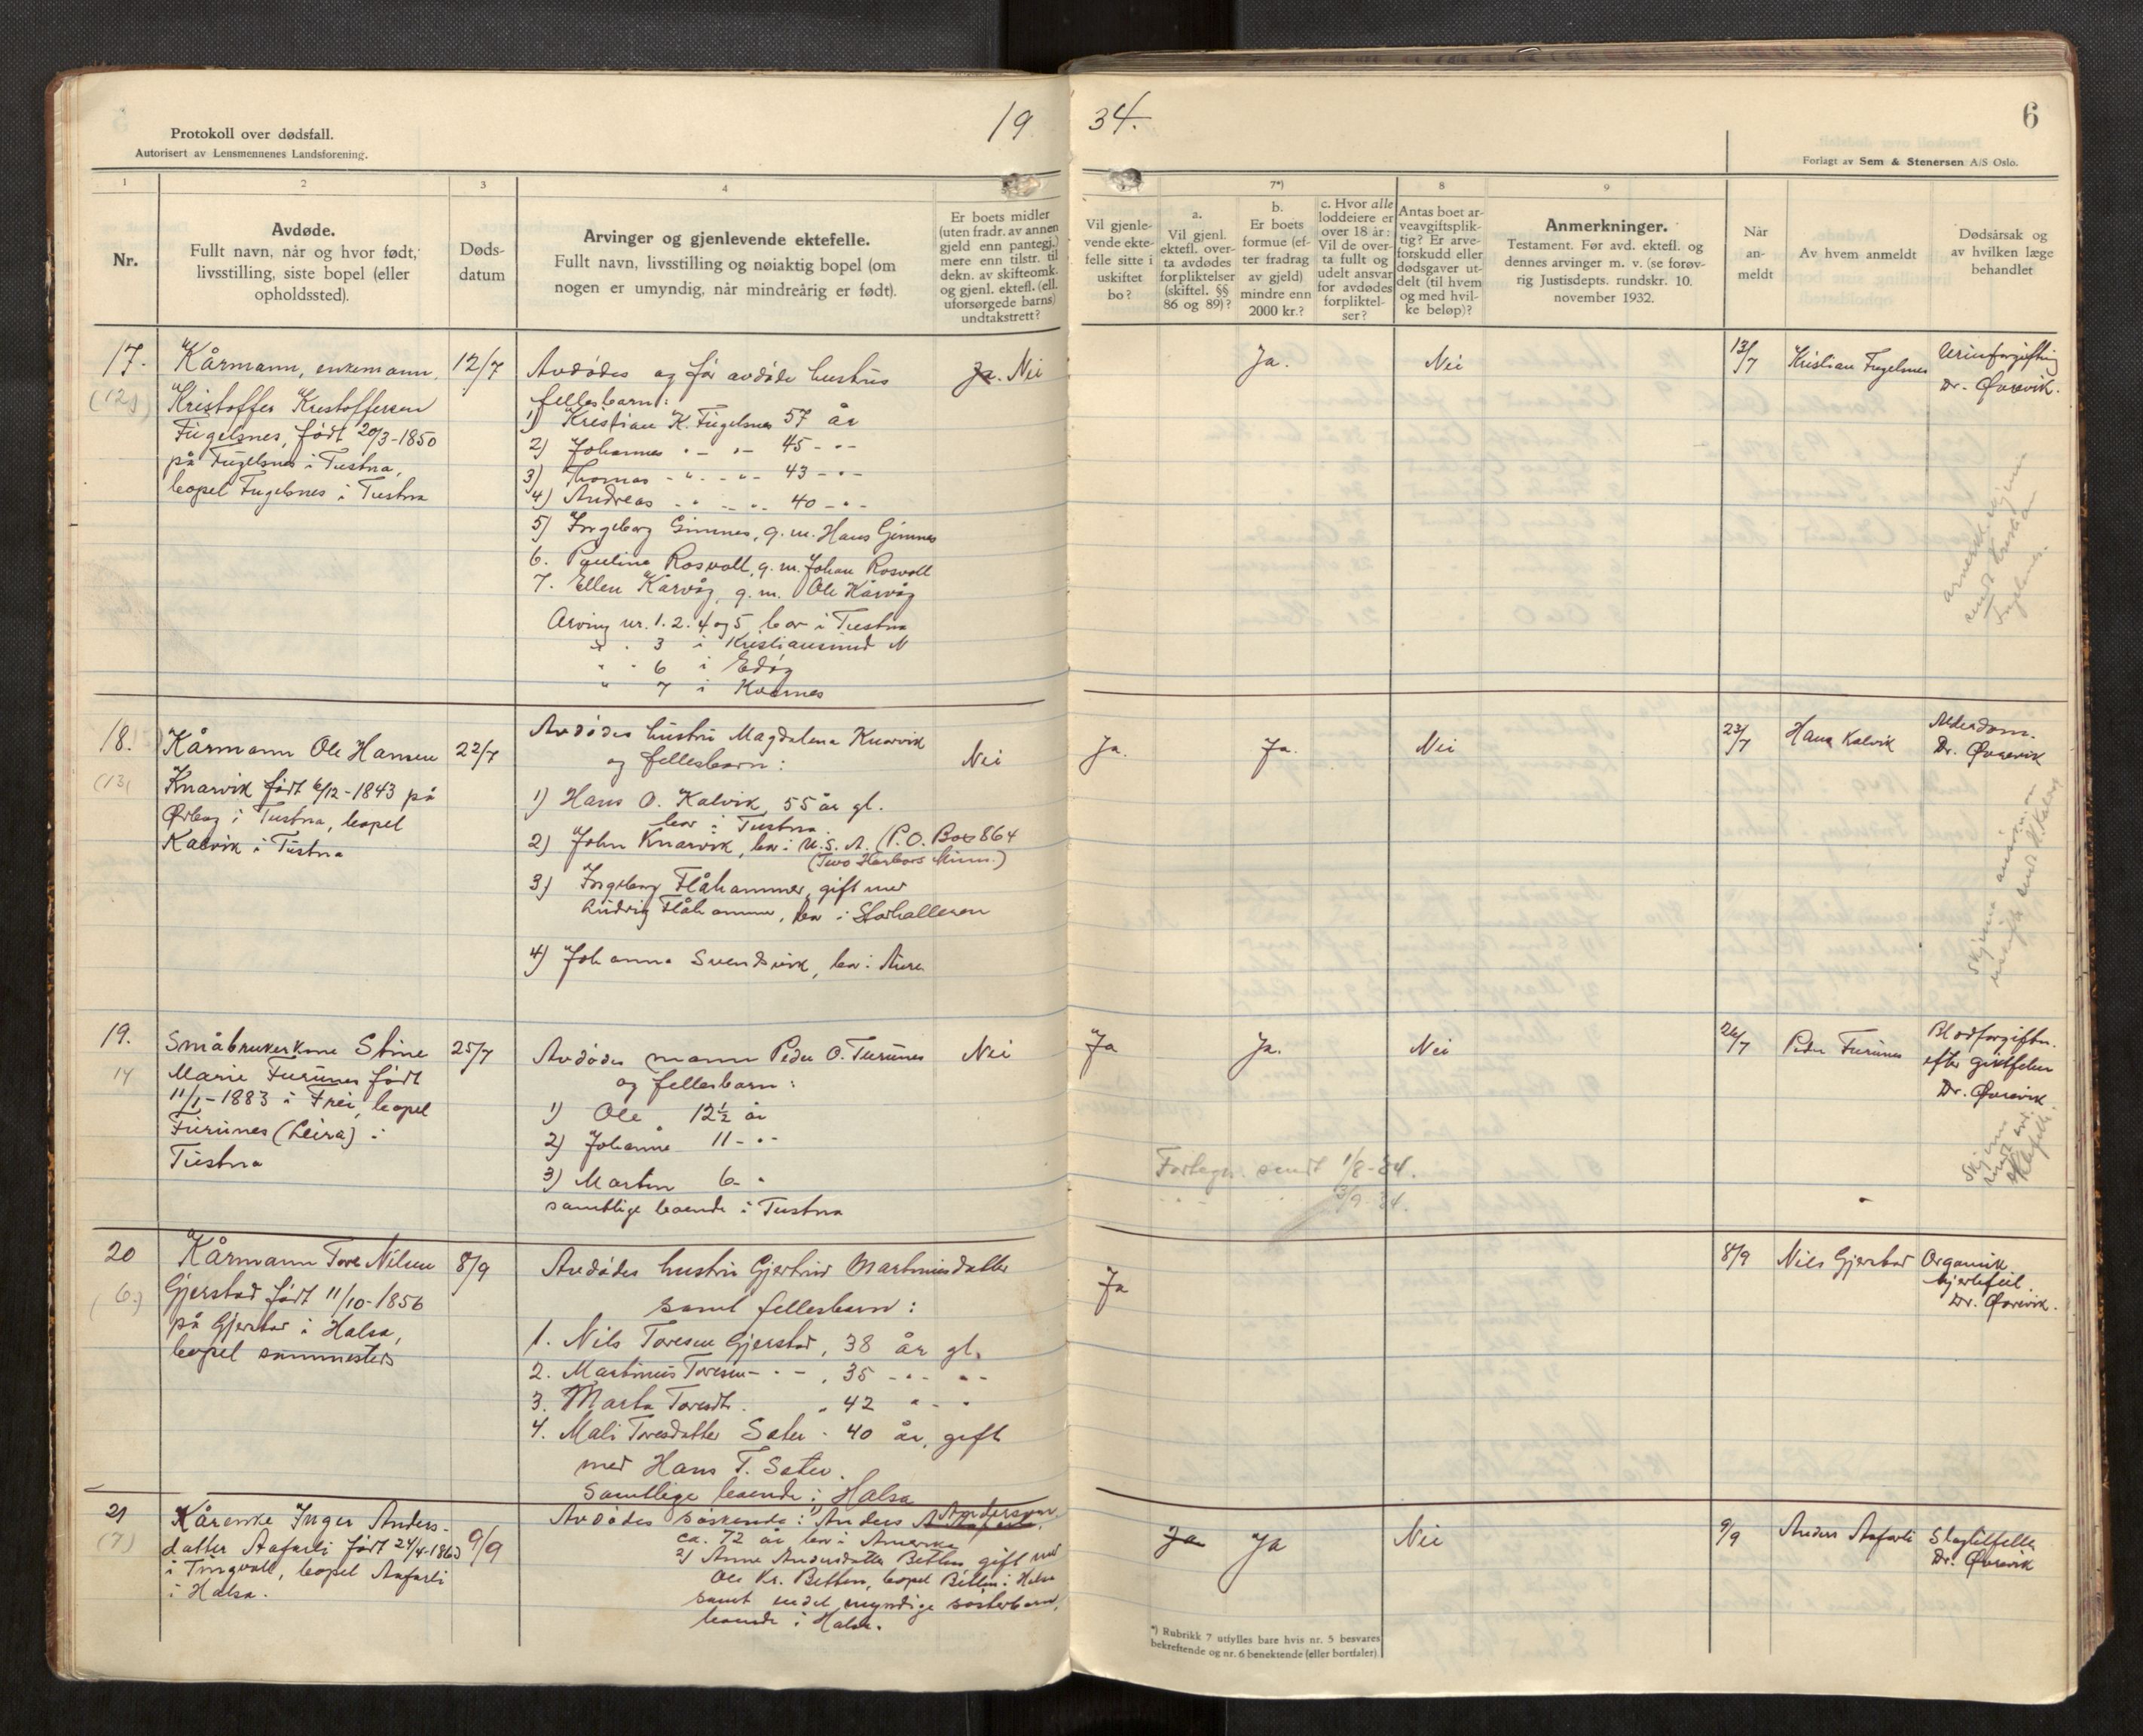 19 34.
6
Protokoll over dødsfall.
Autorisert av Lensmennenes Landsforening.
Forlagt av Sem & Stenersen A/S Oslo.
1
2
3
4
7*)
8
9
Nr.
Avdøde.
Fullt navn, når og hvor født,
livsstilling, siste bopel (eller
opholdssted).
Døds-
datum
Arvinger og gjenlevende ektefelle.
Fullt navn, livsstilling og nøiaktig bopel (om
nogen er umyndig, når mindreårig er født).
Er boets midler
(uten fradr. av annen
gjeld enn pantegj.)
mere enn tilstr. til
dekn. av skifteomk.
og gjenl. ektef. (ell.
uforsørgede barns)
undtakstrett?
Vil gjenle-
vende ekte-
felle sitte i
uskiftet
bo?
a.
Vil gjenl.
ektefl. over-
ta avdødes
forpliktelser
(skiftel. §§
86 og 89)?
b.
Er boets
formue (ef-
ter fradrag
av gjeld)
mindre enn
2000 kr.?
c. Hvor alle
loddeiere er
over 18 år:
Vil de over-
ta fullt og
udelt ansvar
for avdødes
forpliktel-
ser?
Antas boet ar-
veavgiftsplik-
tig? Er arve-
forskudd eller
dødsgaver ut-
delt (til hvem
og med hvil-
ke beløp)?
Anmerkninger.
Testament. Før avd. ektefl. og
dennes arvinger m. v. (se forøv-
rig Justisdepts. rundskr. 10.
november 1932.
Når
an-
meldt
Av hvem anmeldt
Dødsårsak og
av hvilken læge
behandlet
17.
(12)
Kårmann, enkemann,
Kristoffer Kristoffersen
Fugelsnes, født 20/3-1850
på Fugelsnes i Tustna,
bopel Fugelsnes i Tustna
12/7
Avdødes og før avdøde hustrus
fellesbarn:
1) Kristian K. Fugelsnes 57 år
2) Johannes " - " - 45 - " -
3) Thomas - " - - " - 43 - " -
4) Andreas - " - - " - 40 - " -
5) Ingeborg Gimnes, g.m. Hans Gimnes
6. Pauline Rosvoll, g.m. Johan Rosvoll
7. Ellen Kårvåg, g.m. Ole Kårvåg
Arving nr. 1. 2. 4 og 5 bor i Tustna
" " 3 i Kristiansund N
" " 6 i Edøy
" 7 i Kvernes
Ja. Nei
Ja.
Nei
13/7
Kristian Fugelsnes
Urinforgiftning
Dr. Øvrevik.
18.
(13)
Kårmann Ole Hansen
Knarvik født 6/12-1843 på
i Tustna, bopel
Kalvik i Tustna
22/7
Avdødes hustru Magdalena Knarvik
og fellesbarn:
1) Hans O. Kalvik, 55 år gl.
bor i Tustna.
2) John Knarvik, bor i U.S.A. (P.O. Box 864
(Two Harbors Minn.)
3) Ingeborg Flåhammer, gift med
Ludvig Flåhammer, bor i
4) Johanna Svendsvik, bor i Aure
Nei
Ja.
Ja.
Nei
23/7
Hans Kalvik
Alderdom.
Dr. Øvrevik
19.
14
Småbrukerkone Stine
Marie Furunes født
11/1-1883 i Frei, bopel
Furunes (Leira) i
Tustna
25/7
Avdødes mann Peder O. Furunes
og fellesbarn:
1) Ole 12½ år
2) Johanne 11 - " -
3) Martin 6 - "
samtlige boende i Tustna
Nei
Ja
Ja.
Nei
26/7
Peder Furunes
Blodforgiftn.
efter
Dr. Øvrevik
sendt 1/8-34.
3/9-34.
20
(6.)
Kårmann Tore Nilsen
Gjerstad født 11/10-1856
på Gjerstad i Halsa,
bopel sammesteds
8/9
Avdødes hustru Gjertrud Martinusdatter
samt fellesbarn:
1. Nils Toresen Gjerstad, 38 år gl.
2. Martinus Toresen - " - , 35 - " - " -
3. Marta Toresdtr. " 42 " - "
4. Mali Toresdatter Sæter - 40 år, gift
med Hans T. Sæter.
Samtlige boende i Halsa
Ja
8/9
Nils Gjerstad
Organisk
hjertefeil.
Dr. Øvrevik.
21
(7)
Kårenke Inger Anders-
datter Aafarli født 24/4-1863
i Tingvoll, bopel Aafarli
i Halsa.
9/9
Avdødes søskende: 1) Anders A. Aafarli Andersen,
ca. 72 år, bor i Amerika
2) Anne Andersdatter Betten gift med
Ole Kr. Betten, bopel Betten i Halsa
samt endel myndige søsterbarn,
boende i Halsa.
Ja
Ja
Nei
9/9
Anders Aafarli
Slagtilfelle
Dr. Øvrevik
*) Rubrikk 7 utfylles bare hvis nr. 5 besvares
bekreftende og nr. 6 benektende (eller bortfaler).